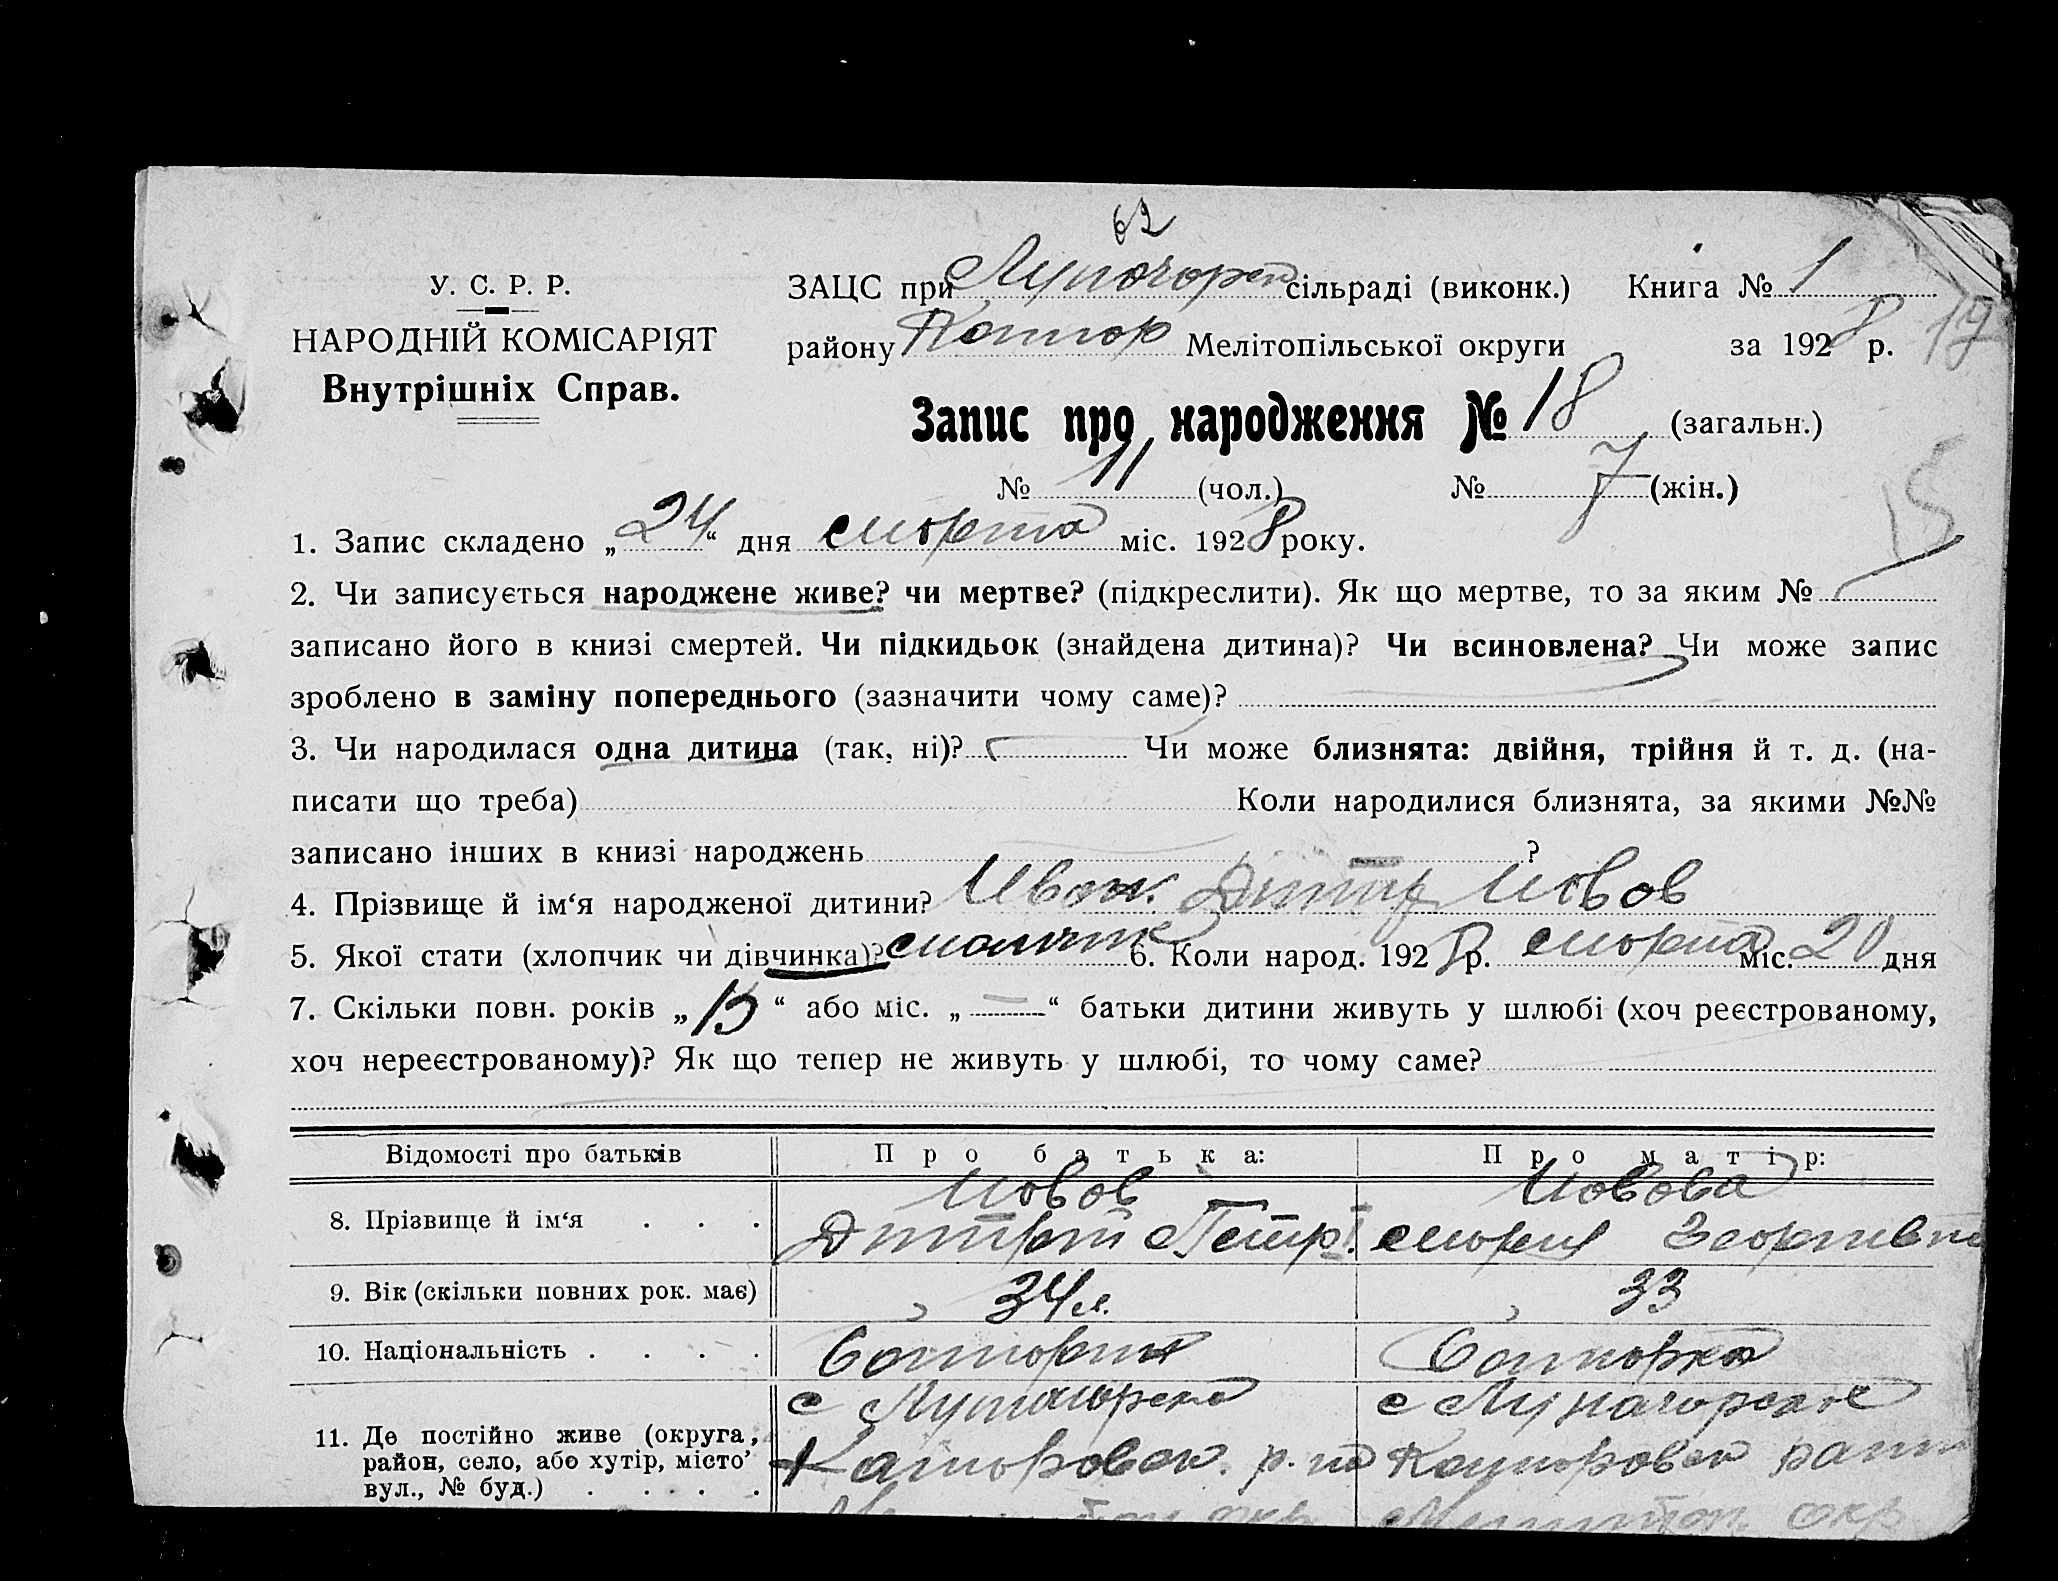 62
У. С. Р. Р.
НАРОДНІЙ КОМІСАРІЯТ
Внутрішніх Справ.
ЗАЦС при сільраді (виконк.) Книга № 1
району Мелітопільської округи за 1928 р. 19
Запис про народження № 18 (загальн.)
№ 11 (чол.) № 7 (жін.)
15
1. Запис складено „24“ дня марта міс. 1928 року.
2. Чи записується народжене живе? чи мертве? (підкреслити). Як що мертве, то за яким №
записано його в книзі смертей. Чи підкидьок (знайдена дитина)? Чи всиновлена? Чи може запис
зроблено в заміну попереднього (зазначити чому саме)?
3. Чи народилася одна дитина (так, ні)? Чи може близнята: двійня, трійня й т. д. (на-
писати що треба) Коли народилися близнята, за якими №№
записано інших в книзі народжень ?
4. Прізвище й ім‘я народженої дитини? Иван Дмитр Иовов
5. Якої стати (хлопчик чи дівчинка)? 6. Коли народ. 1928 р. марта міс. 20 дня
7. Скільки повн. років „13“ або міс. „—“ батьки дитини живуть у шлюбі (хоч реєстрованому,
хоч нереєстрованому)? Як що тепер не живуть у шлюбі, то чому саме?
Відомості про батьків Про батька: Про матір:
Иовов Иовова
8. Прізвище й ім‘я . . . Дмитрий Петр. Мария Георгиевна
9. Вік (скільки повних рок. має) 34 л. 33
10. Національність . . . . Болгорин Болгорка
с с
11. Де постійно живе (округа,
район, село, або хутір, місто’
вул., № буд.) . . . .
окр